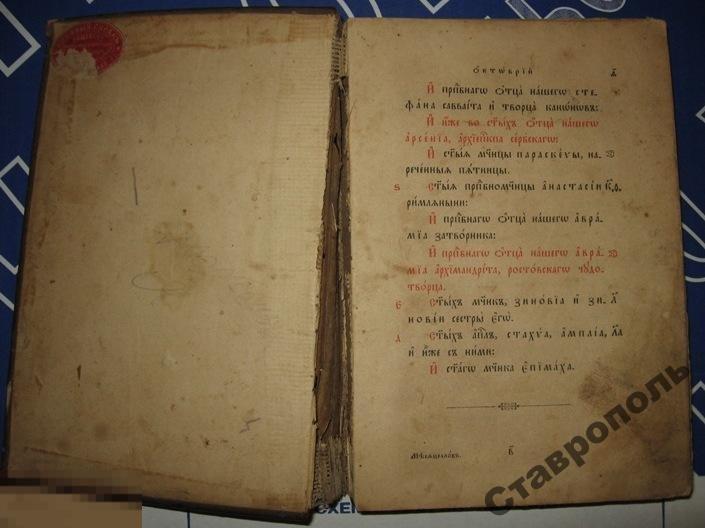 Октѡврій
И҆ прпⷣбнагѡ ѻ҆тца̀ на́шегѡ сте-
фа́на савваі́та и҆ творца̀ канѡ́нѡвъ:
И҆ и҆́же во ст҃ы́хъ ѻ҆тца̀ на́шегѡ
а҆рсе́нїа, а҆рхїепⷭ҇кпа се́рбскагѡ:
И҆ ст҃ы́ѧ мч҃нцы параскеѵы, на-
рече́нныѧ пѧ́тницы.
ѕ Ст҃ы́ѧ прпⷣбномч҃нцы а҆настасі́и
ри́млѧныни:
И҆ прпⷣбнагѡ ѻ҆тца̀ на́шегѡ а҆вра-
мі́а затво́рника:
И҆ прпⷣбнагѡ ѻ҆тца̀ на́шегѡ а҆вра-
мі́а а҆рхїмандрі́та, росто́вскагѡ чꙋдо-
тво́рца.
є Ст҃ы́хъ мч҃нкъ, зино́вїа и҆ зи-
нові́и сестры̀ є҆гѡ̀.
д Ст҃ы́хъ а҆пⷭ҇лъ, ста́хѵа, а҆мплі́а,
и҆ и҆́же съ ни́ми:
И҆ ст҃а́гѡ мч҃нка є҆піма́ха.
Мѣсѧцесло́въ.
Ставрополь